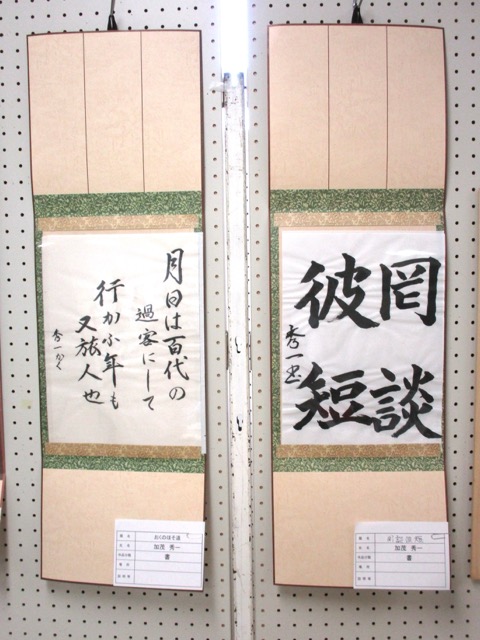 月日は百代の
過客にして
行かふ年も
又旅人也
秀一かく
おくのほそ道
加茂 秀一
書
罔談
彼短
秀一書
罔談彼短
加茂 秀一
書